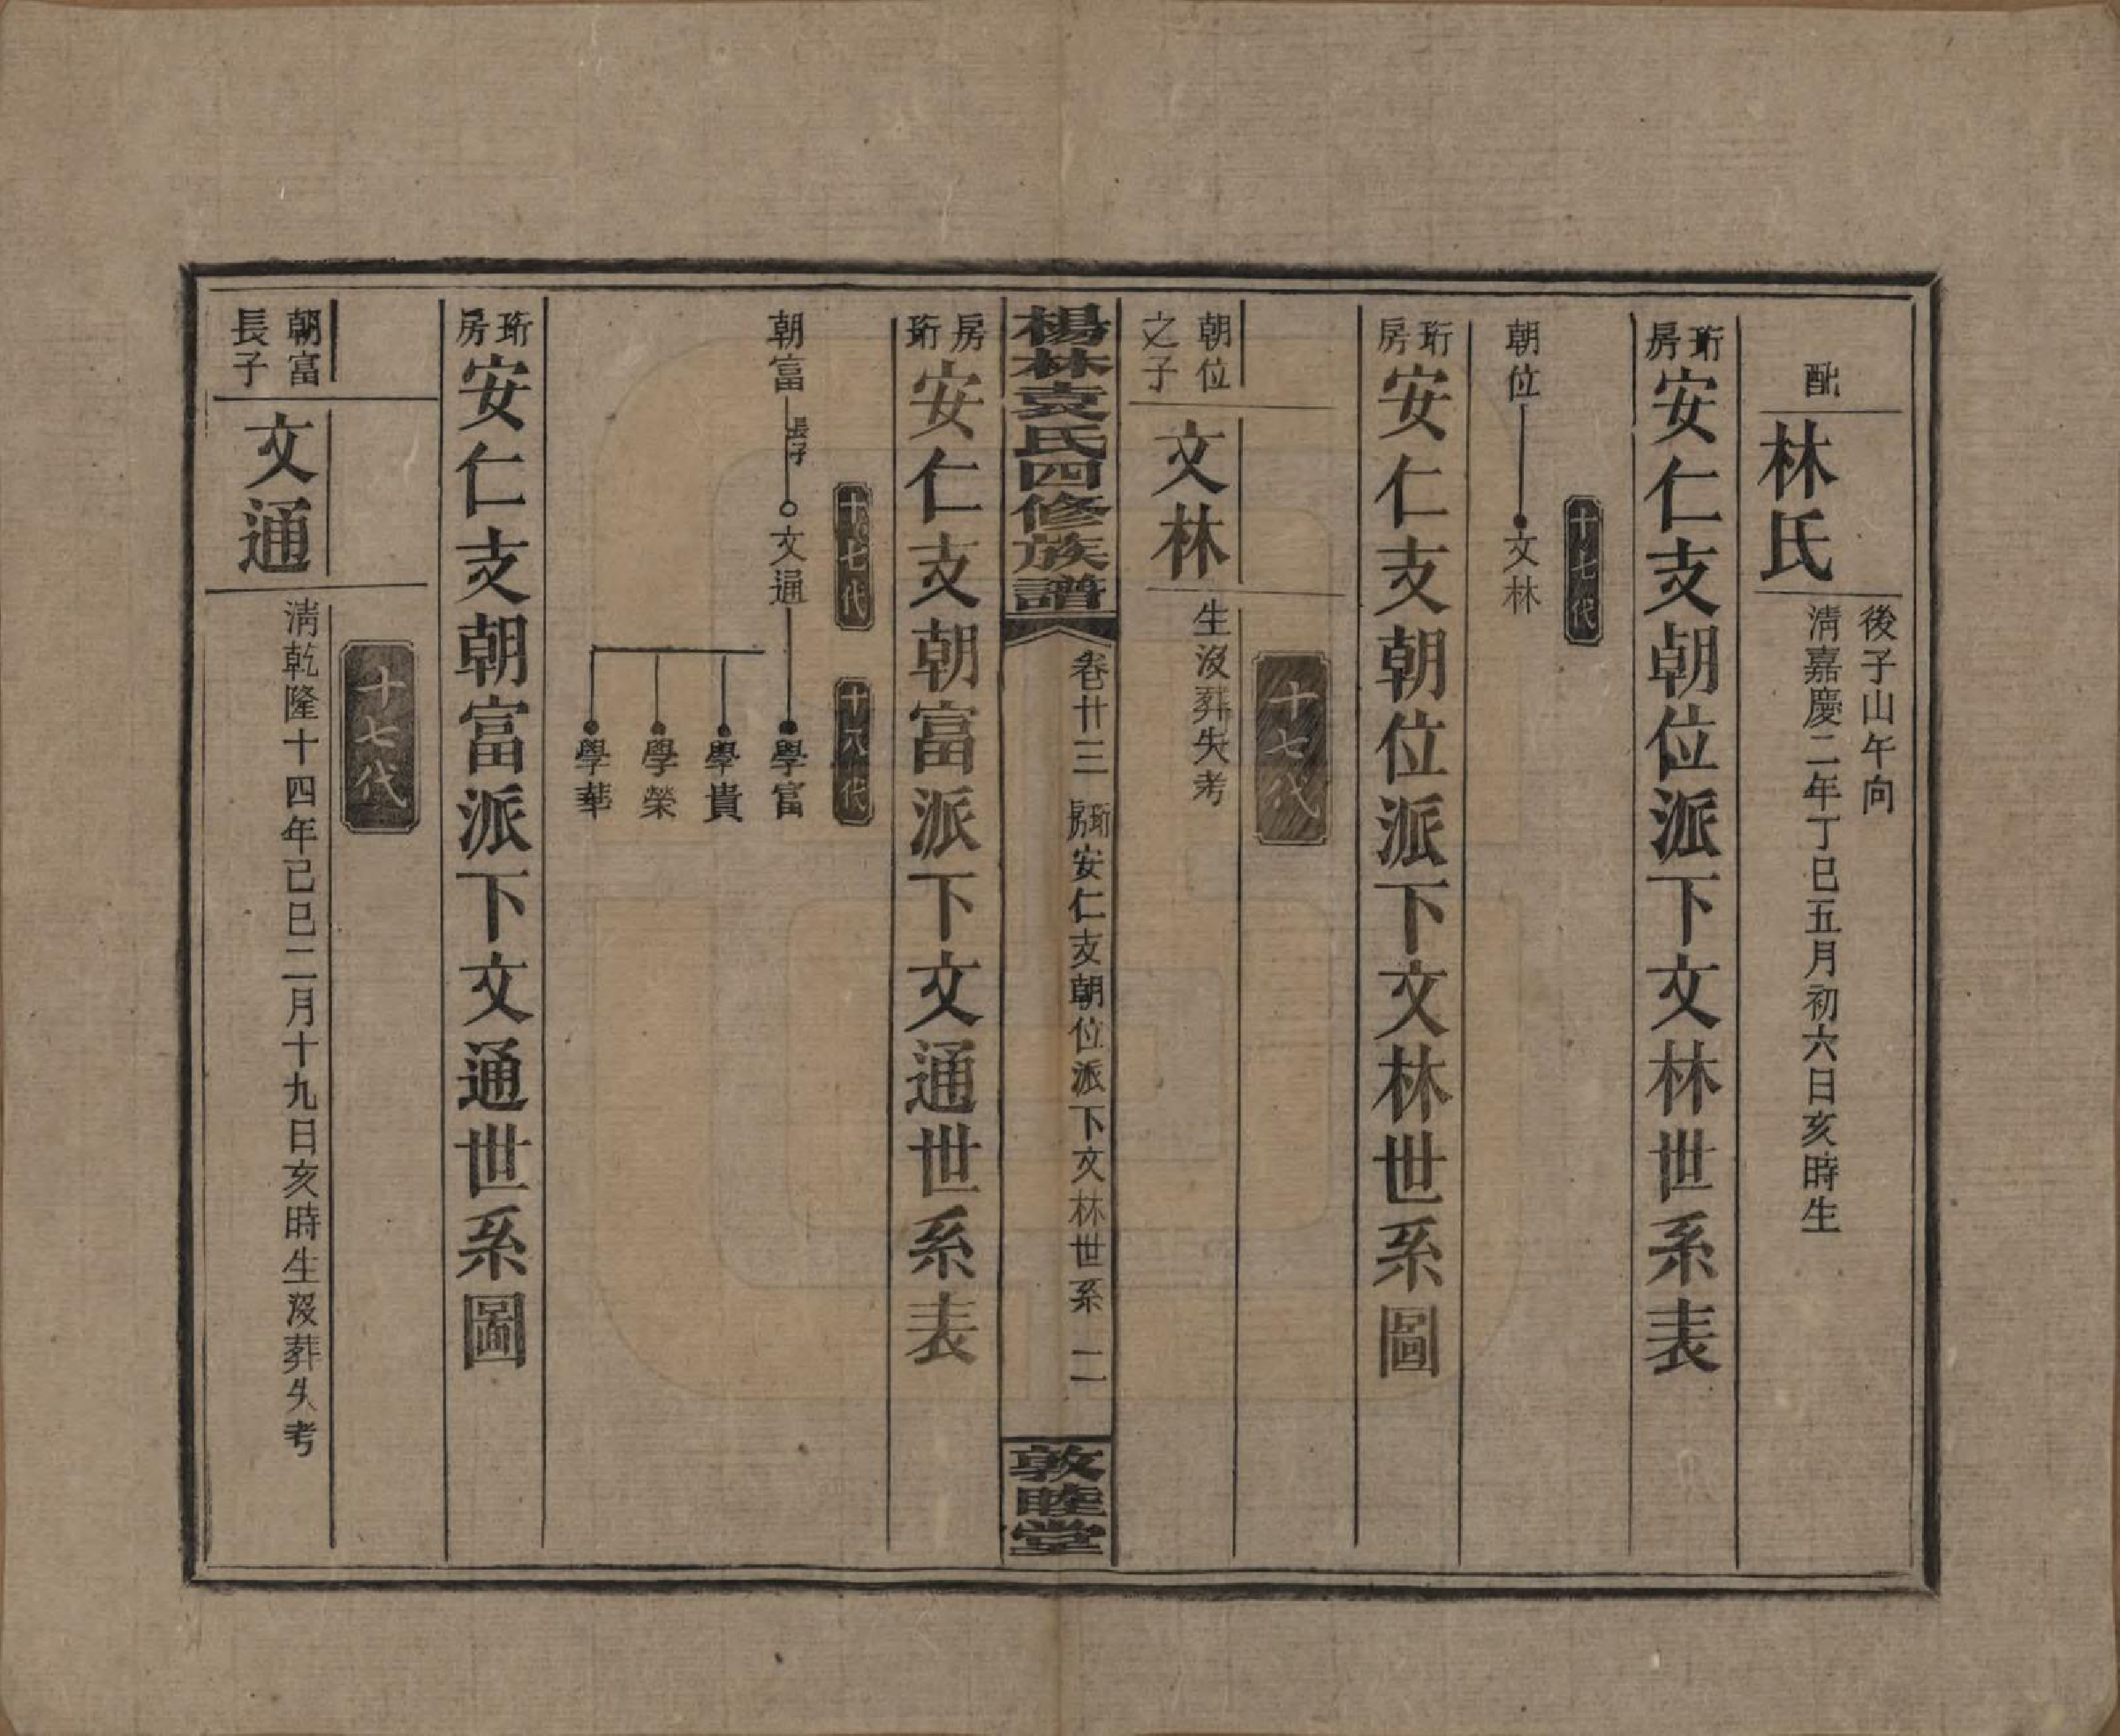 後子山午向
配
林氏
清嘉慶二年丁巳五月初六日亥時生
珩房
安仁支朝位派下文林世系表
十七代
朝位
文林
珩房
安仁支朝位派下文林世系圖
十七代
朝位之子
文林
生沒葬失考
楊林袁氏四修族譜
卷廿三
珩房
安仁支朝位派下文林世系
二
敦睦堂
房珩
安仁支朝富派下文通世系表
十七代
十八代
朝富
長子
文通
學富
學貴
學榮
學華
珩房
安仁支朝富派下文通世系圖
十七代
朝富長子
文通
清乾隆十四年己巳二月十九日亥時生沒葬失考